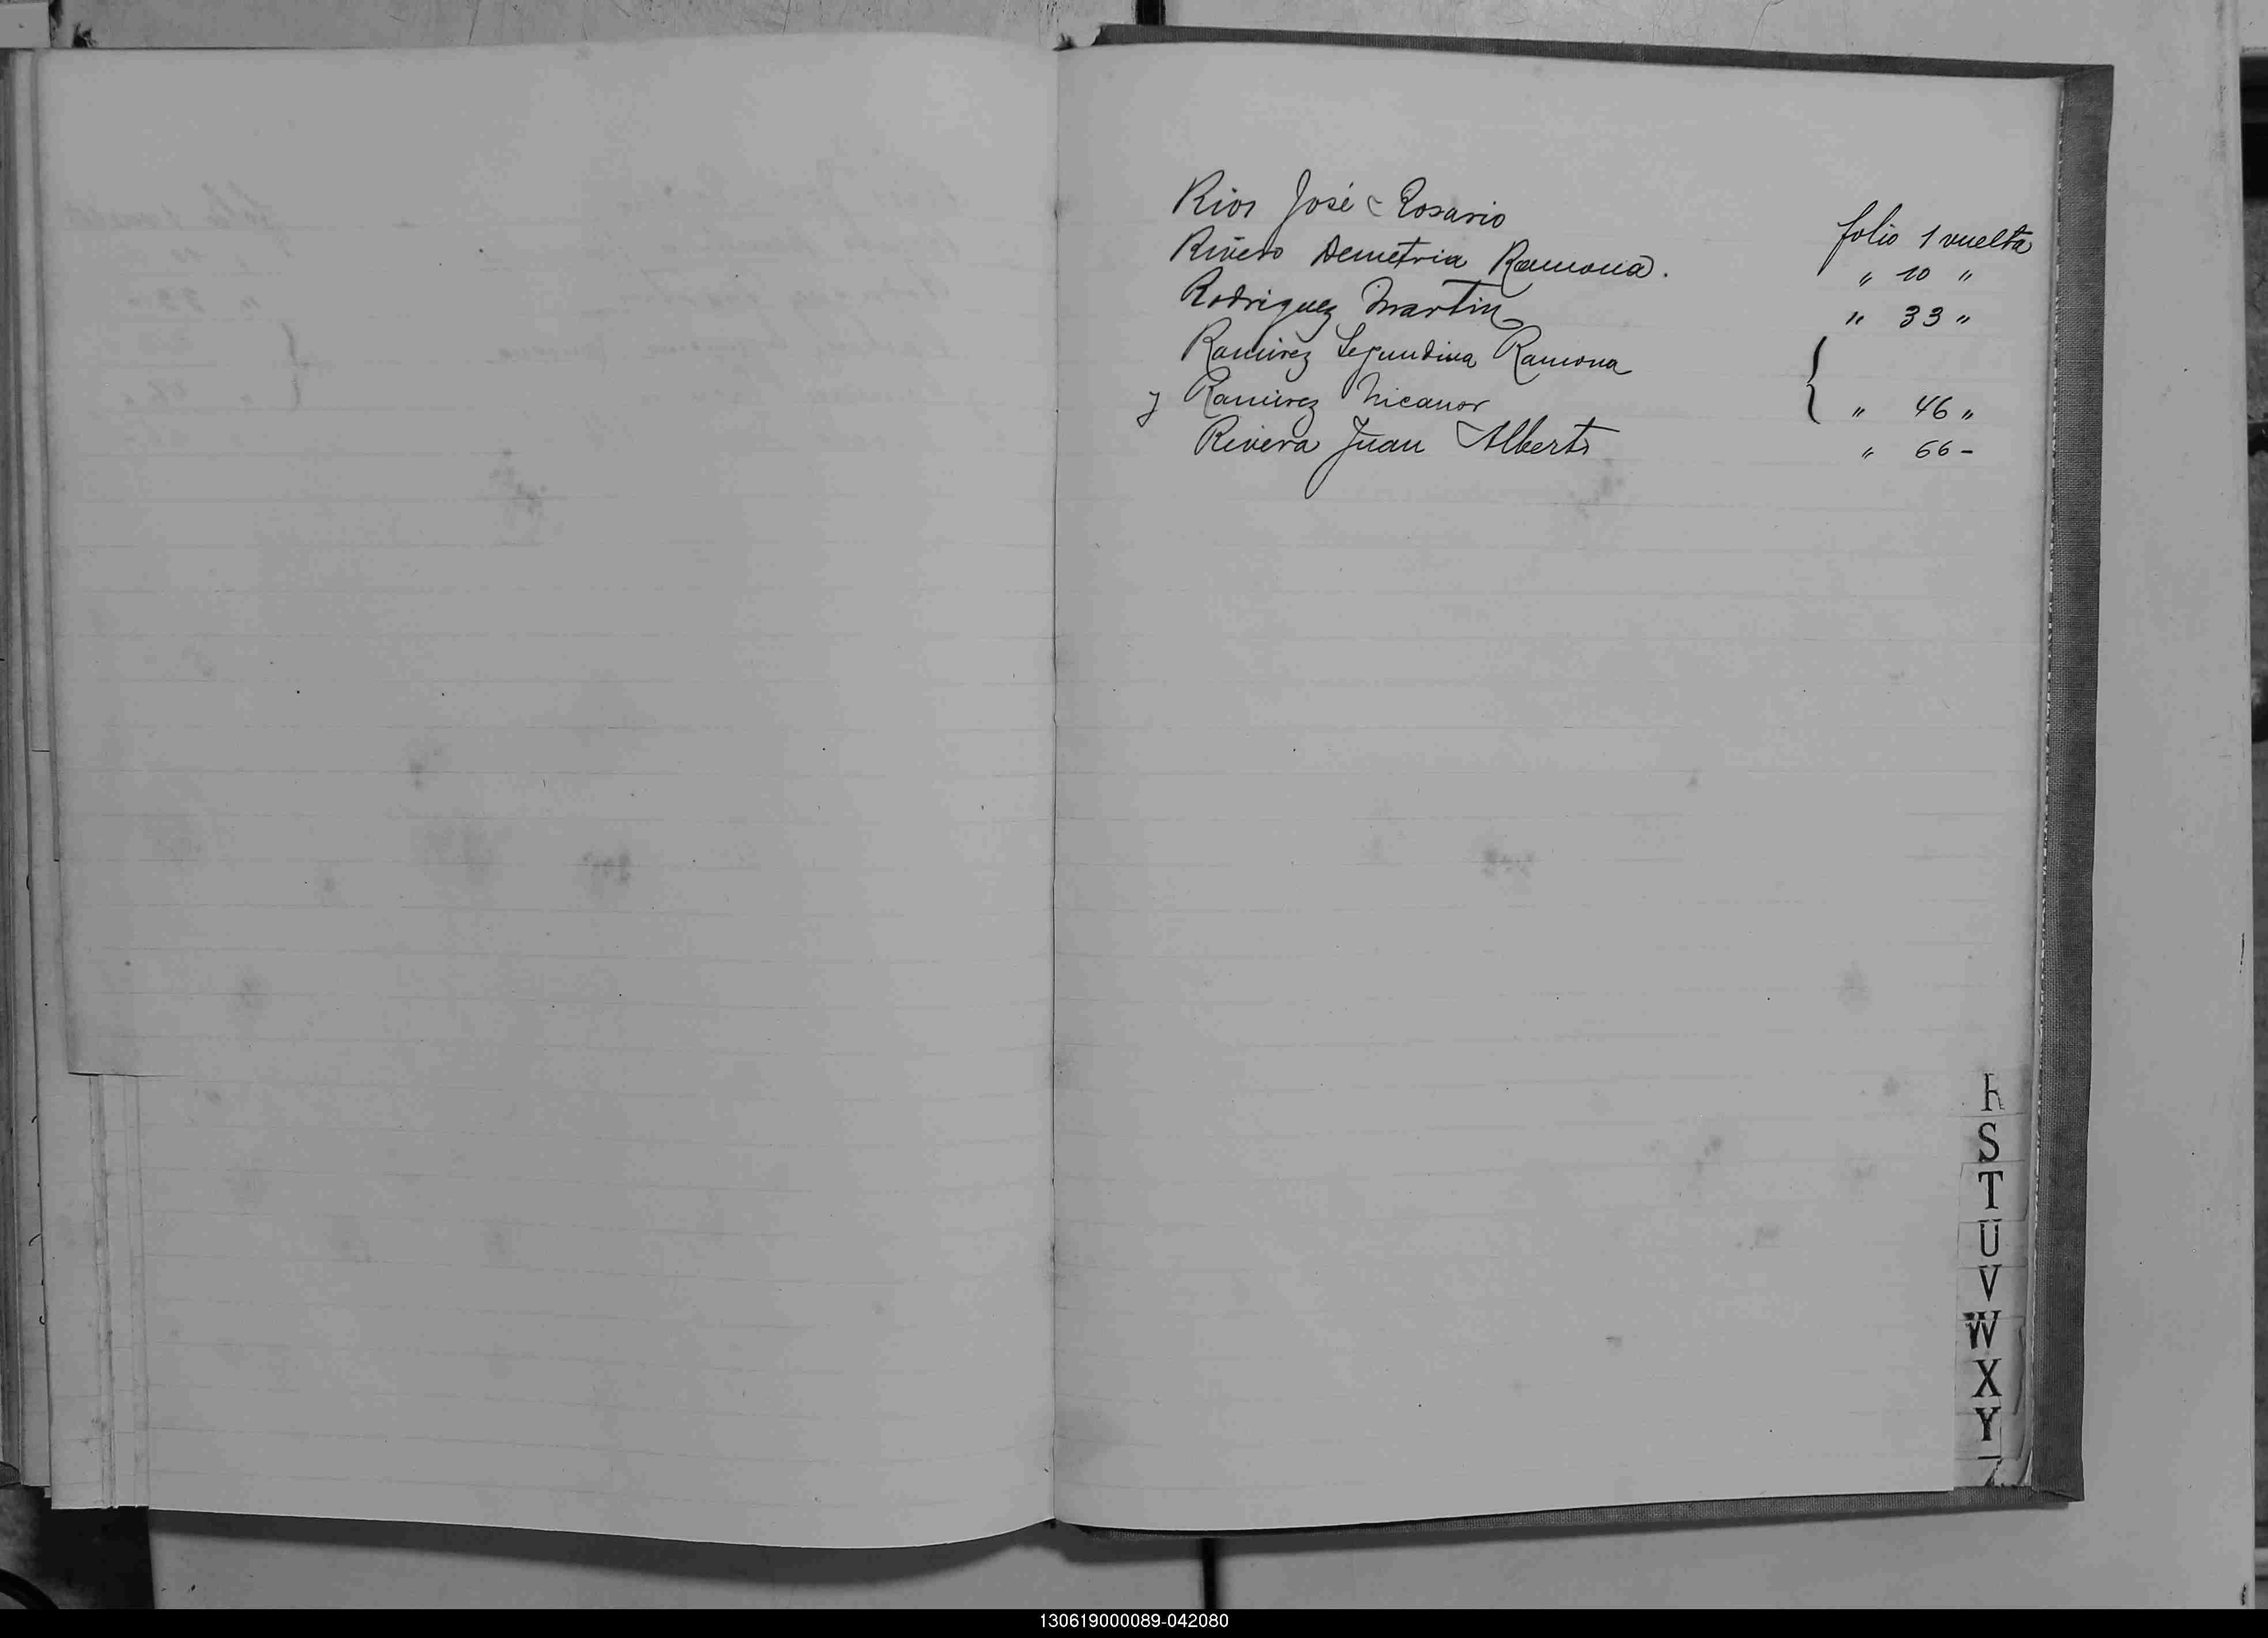 Rios José Rosario folio 1 vuelta
Rivero Demetria Ramona. " 10 "
Rodriguez Martin " 33 "
Ramirez Segundina Ramona {
y Ramirez Nicanor " 46 "
Rivera Juan Alberto " 66 -
R
S
T
U
V
W
X
Y
130619000089-042080